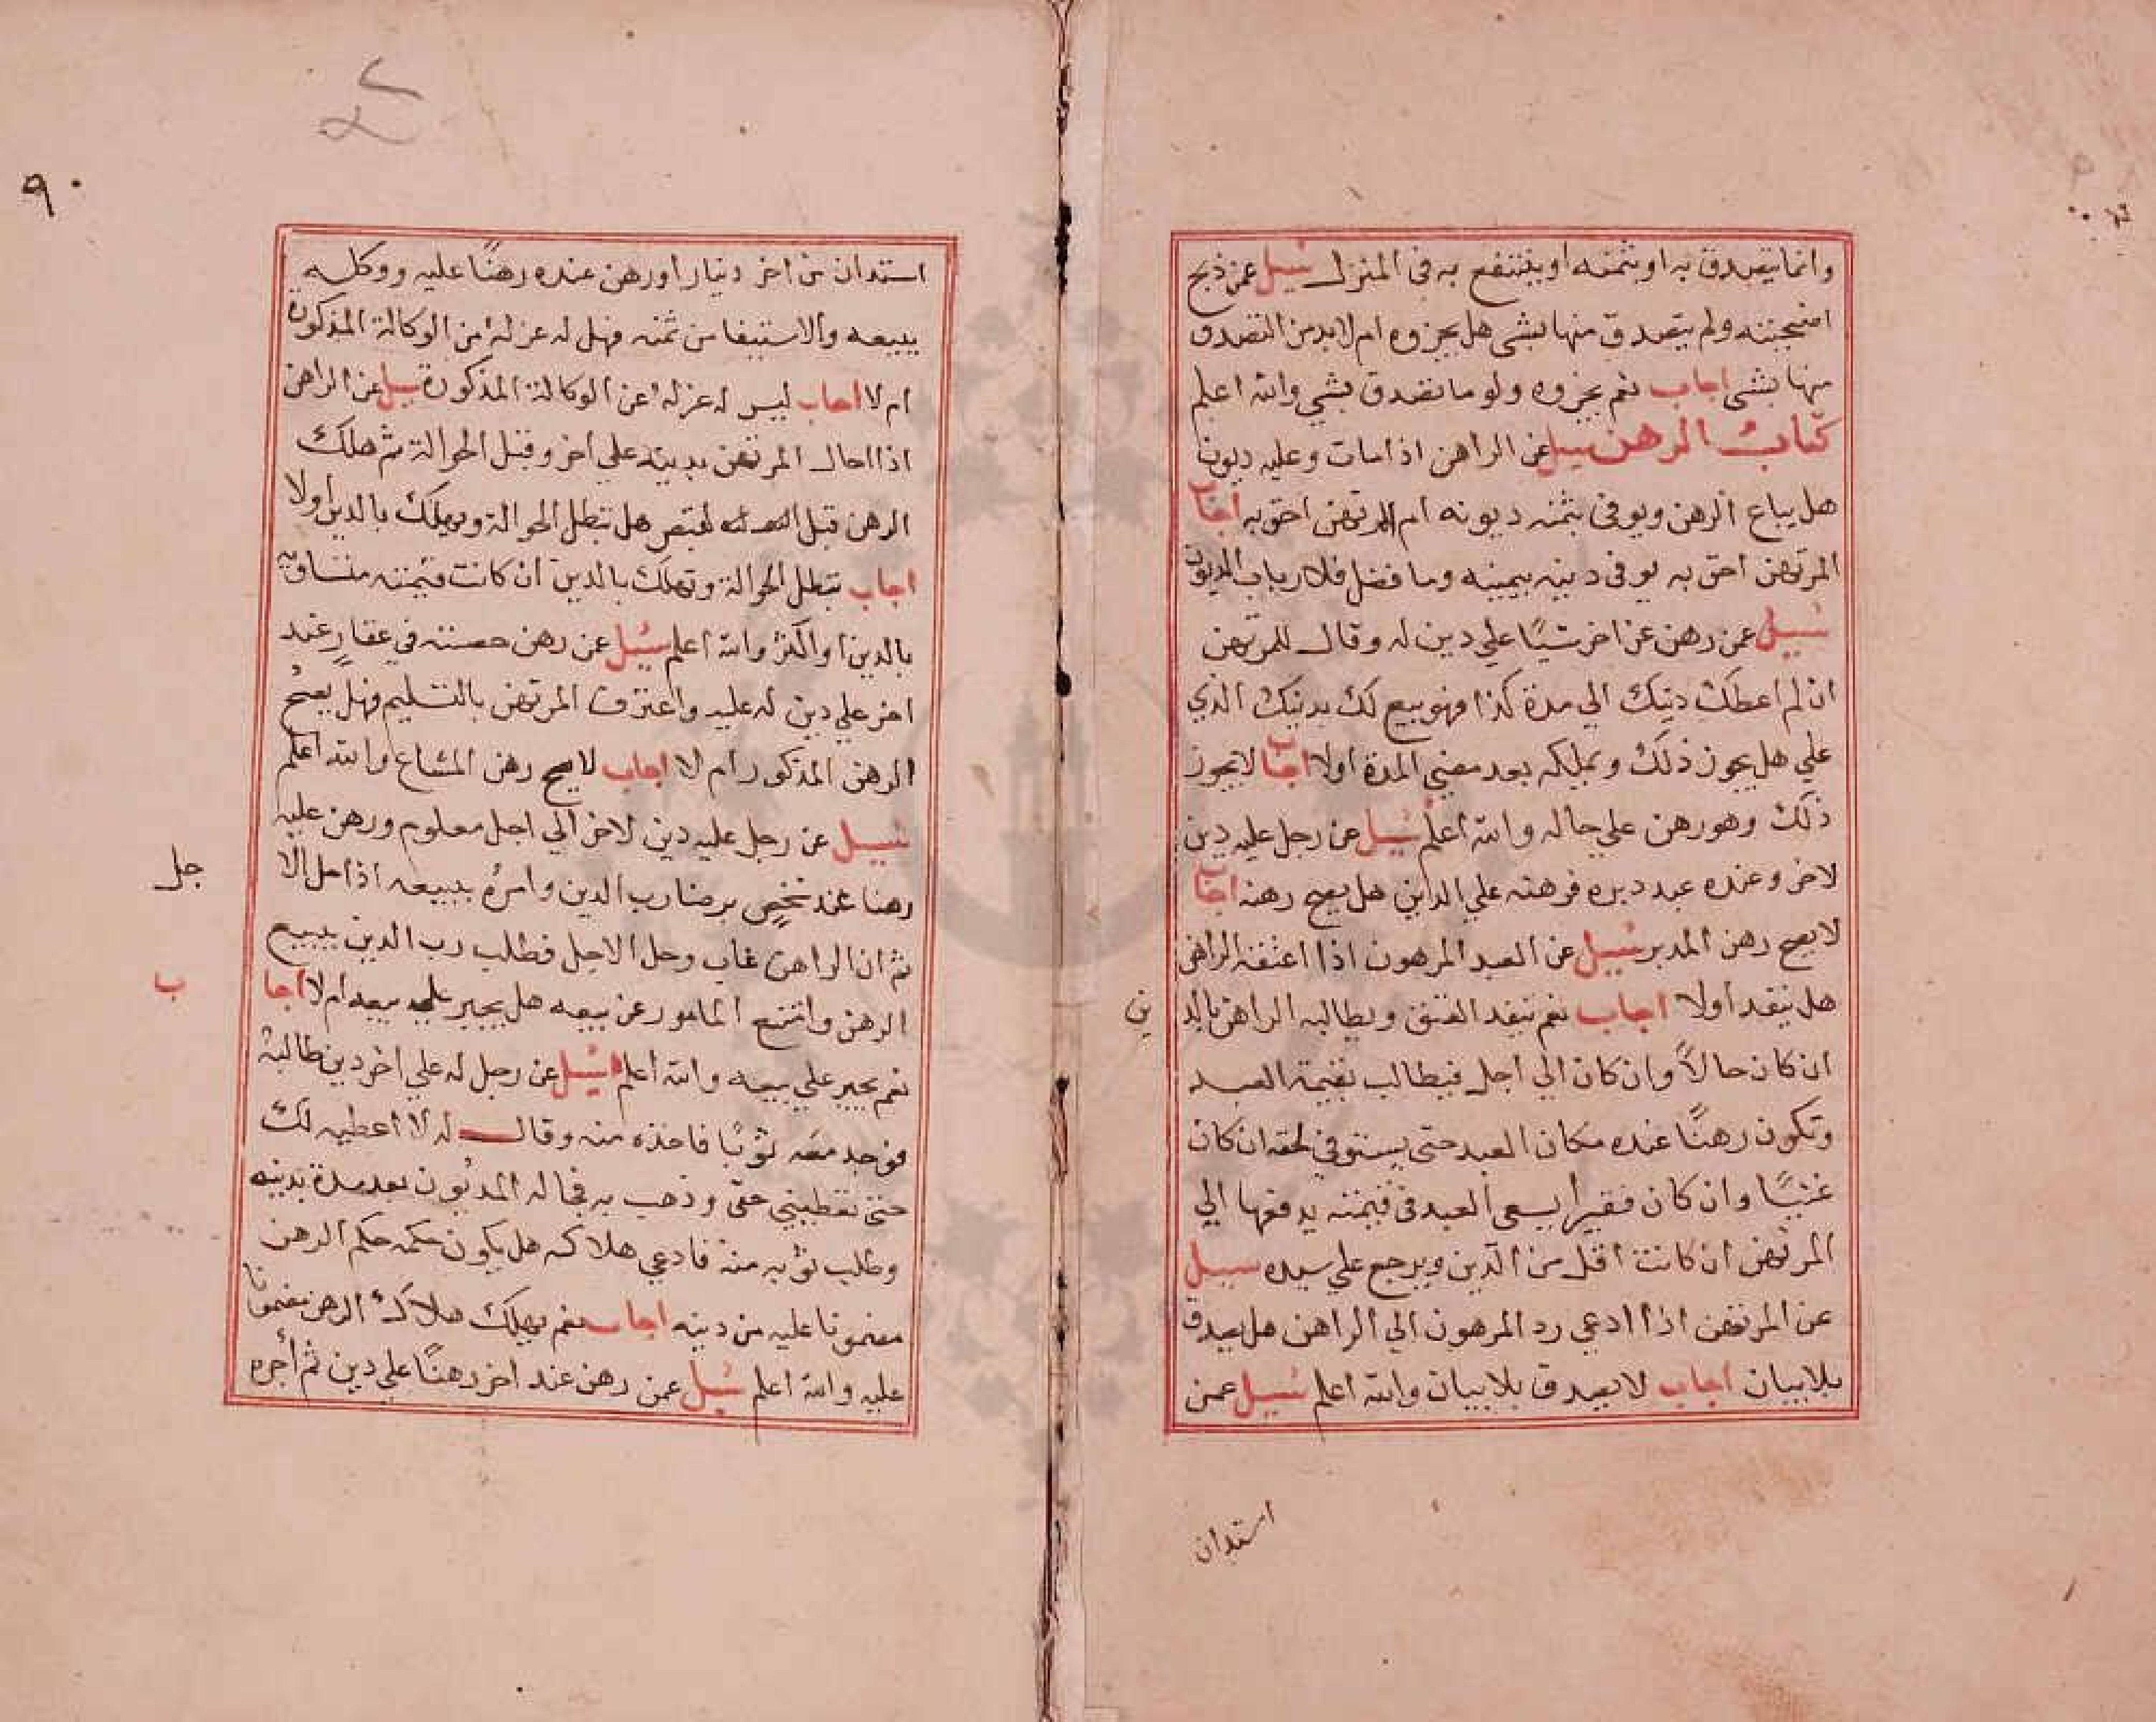 وانما يتصدق به او بثمنه او ينتفع به في المنزل سيل عمن ذبح
اضحيته ولم يتصدق منها بشي هل يجزوه ام لا بد من التصدق
منها بشي اجاب نعم يجزوه ولو ما تصدق بشي والله اعلم
كتاب الرهن سيل عن الراهن اذا مات وعليه ديونا
هل يباع الرهن ويوفي بثمنه ديونه ام المرتهن احق به اجاب
المرتهن احق به يوفي دينه بيمينه وما فضل فلارباب الديون
سيل عمن رهن عن اخر شيًا علي دين له وقال للمرتهن
ان لم اعطك دينك الي مدة كذا فهو بيع لك بدينك الذي
علي هل يجوز ذلك ويملكه بعد مضي المدة اولا اجاب لا يجوز
ذلك وهو رهن علي حاله والله اعلم سيل عن رجل عليه دين
لاخر وعنده عبد دبره فرهنه علي الداين هل يصح رهنه اجاب
لا يصح رهن المدبر سيل عن العبد المرهون اذا اعتقه الراهن
هل ينفد اولا اجاب نعم ينفد العتق ويطالبه الراهن بالد ين
ان كان حالاً وان كان الي اجل فيطالب بقيمة العبد
وتكون رهنًا عنده مكان العبد حتي يستوفي لحقه ان كان
غنيًا وان كان فقيرا يسعي العبد في قيمته يدفعها الي
المرتهن ان كانت اقل من الدين ويرجع علي سيده سيل
عن المرتهن اذا ادعي رد المرهون الي الراهن هل يصدق
بلا بيان اجاب لا يصدق بلا بيان والله اعلم سيل عمن
استدان
٩٠
استدان من اخر دينارا ورهن عنده رهنًا عليه ووكله
ببيعه والاستيفا من ثمنه فهل له عزله من الوكالة المذكورة
ام لا اجاب ليس له عزله عن الوكالة المذكورة سيل عن الراهن
اذا احال المرتهن بدينه علي اخر وقبل الحوالة ثم هلك
الرهن قبل هل تبطل الحوالة ويهلك بالدين اولا
اجاب تبطل الحوالة وتهلك بالدين ان كانت قيمته متساوية
بالدين او اكثر والله اعلم سيل عن رهن حصته في عقار عند
اخر علي دين له عليه واعترف المرتهن بالتسليم فهل يصح
الرهن المذكور ام لا اجاب لا يصح رهن المشاع والله اعلم
سيل عن رجل عليه دين لاخر الي اجل معلوم ورهن عليه
رهنا عند شخص برضا رب الدين وامره ببيعه اذا حل الا جل
ثم ان الراهن غاب وحل الاجل فطلب رب الدين ببيع
الرهن وامتنع المامور عن بيعه هل يجبر علي بيعه ام لا اجا ب
نعم يجبر علي بيعه والله اعلم سيل عن رجل له علي اخر دين طالبه
فوجد معه ثوبًا فاخذه منه وقال له لا اعطيه لك
حتي تعطيني حقي وذهب به فجا له المديون بعد مدة بدينه
وطلب ثوبه منه فادعي هلاكه هل يكون حكمه حكم الرهن
مضمونا عليه من دينه اجاب نعم يهلك هلاك الرهن مضمونا
عليه والله اعلم سيل عمن رهن عند اخر رهنًا علي دين ثم أجره